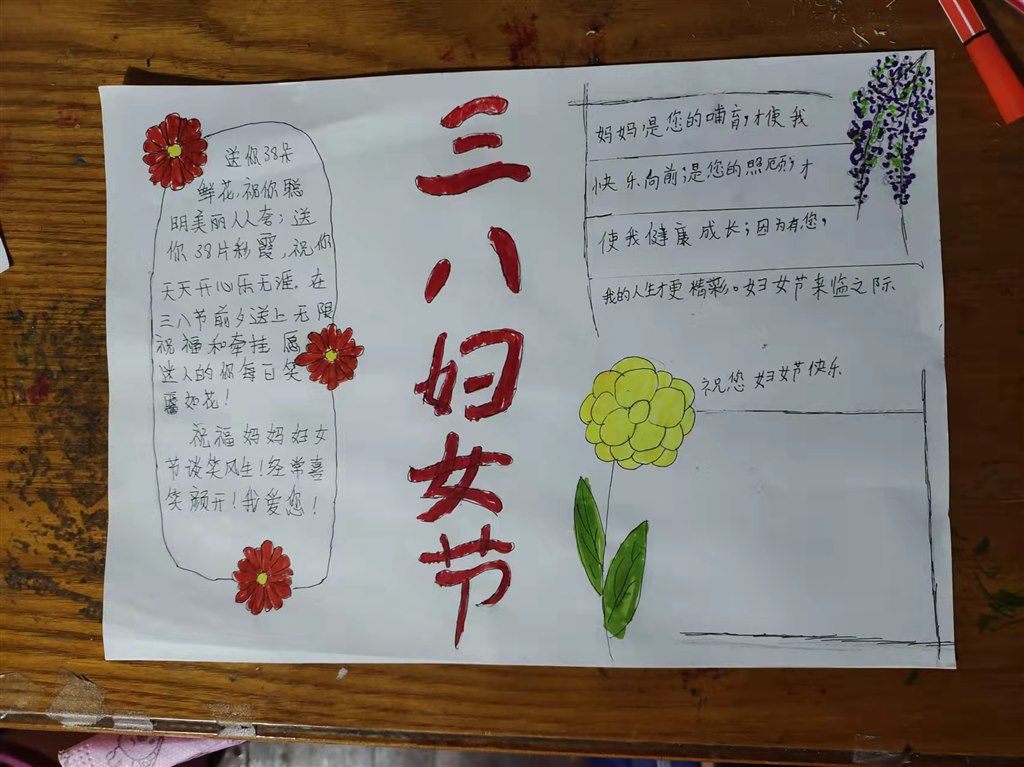 送你38朵
鲜花,祝你聪
明美丽人人夸;送
你38片彩霞,祝你
天天开心乐无涯.在
三八节前夕送上无限
祝福和牵挂 愿
迷人的你每日笑
如花!
祝福妈妈妇女
节谈笑风生!经常喜
笑颜开!我爱您!
三八妇女节
妈妈,是您的哺育,才使我
快乐向前;是您的照顾,才
使我健康成长;因为有您,
我的人生才更精彩。妇女节来临之际
祝您妇女节快乐